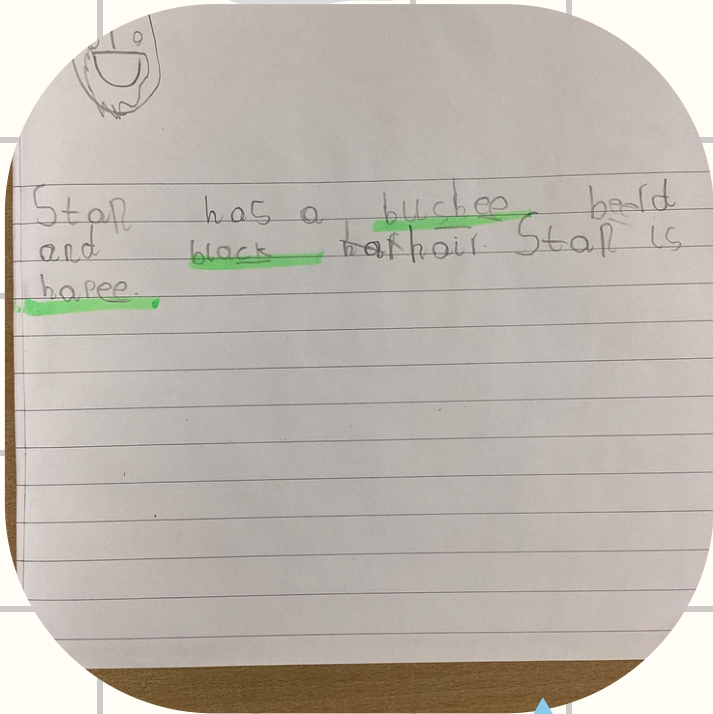 Stan has a buchee beald
and black hair. Stan is
hapee.